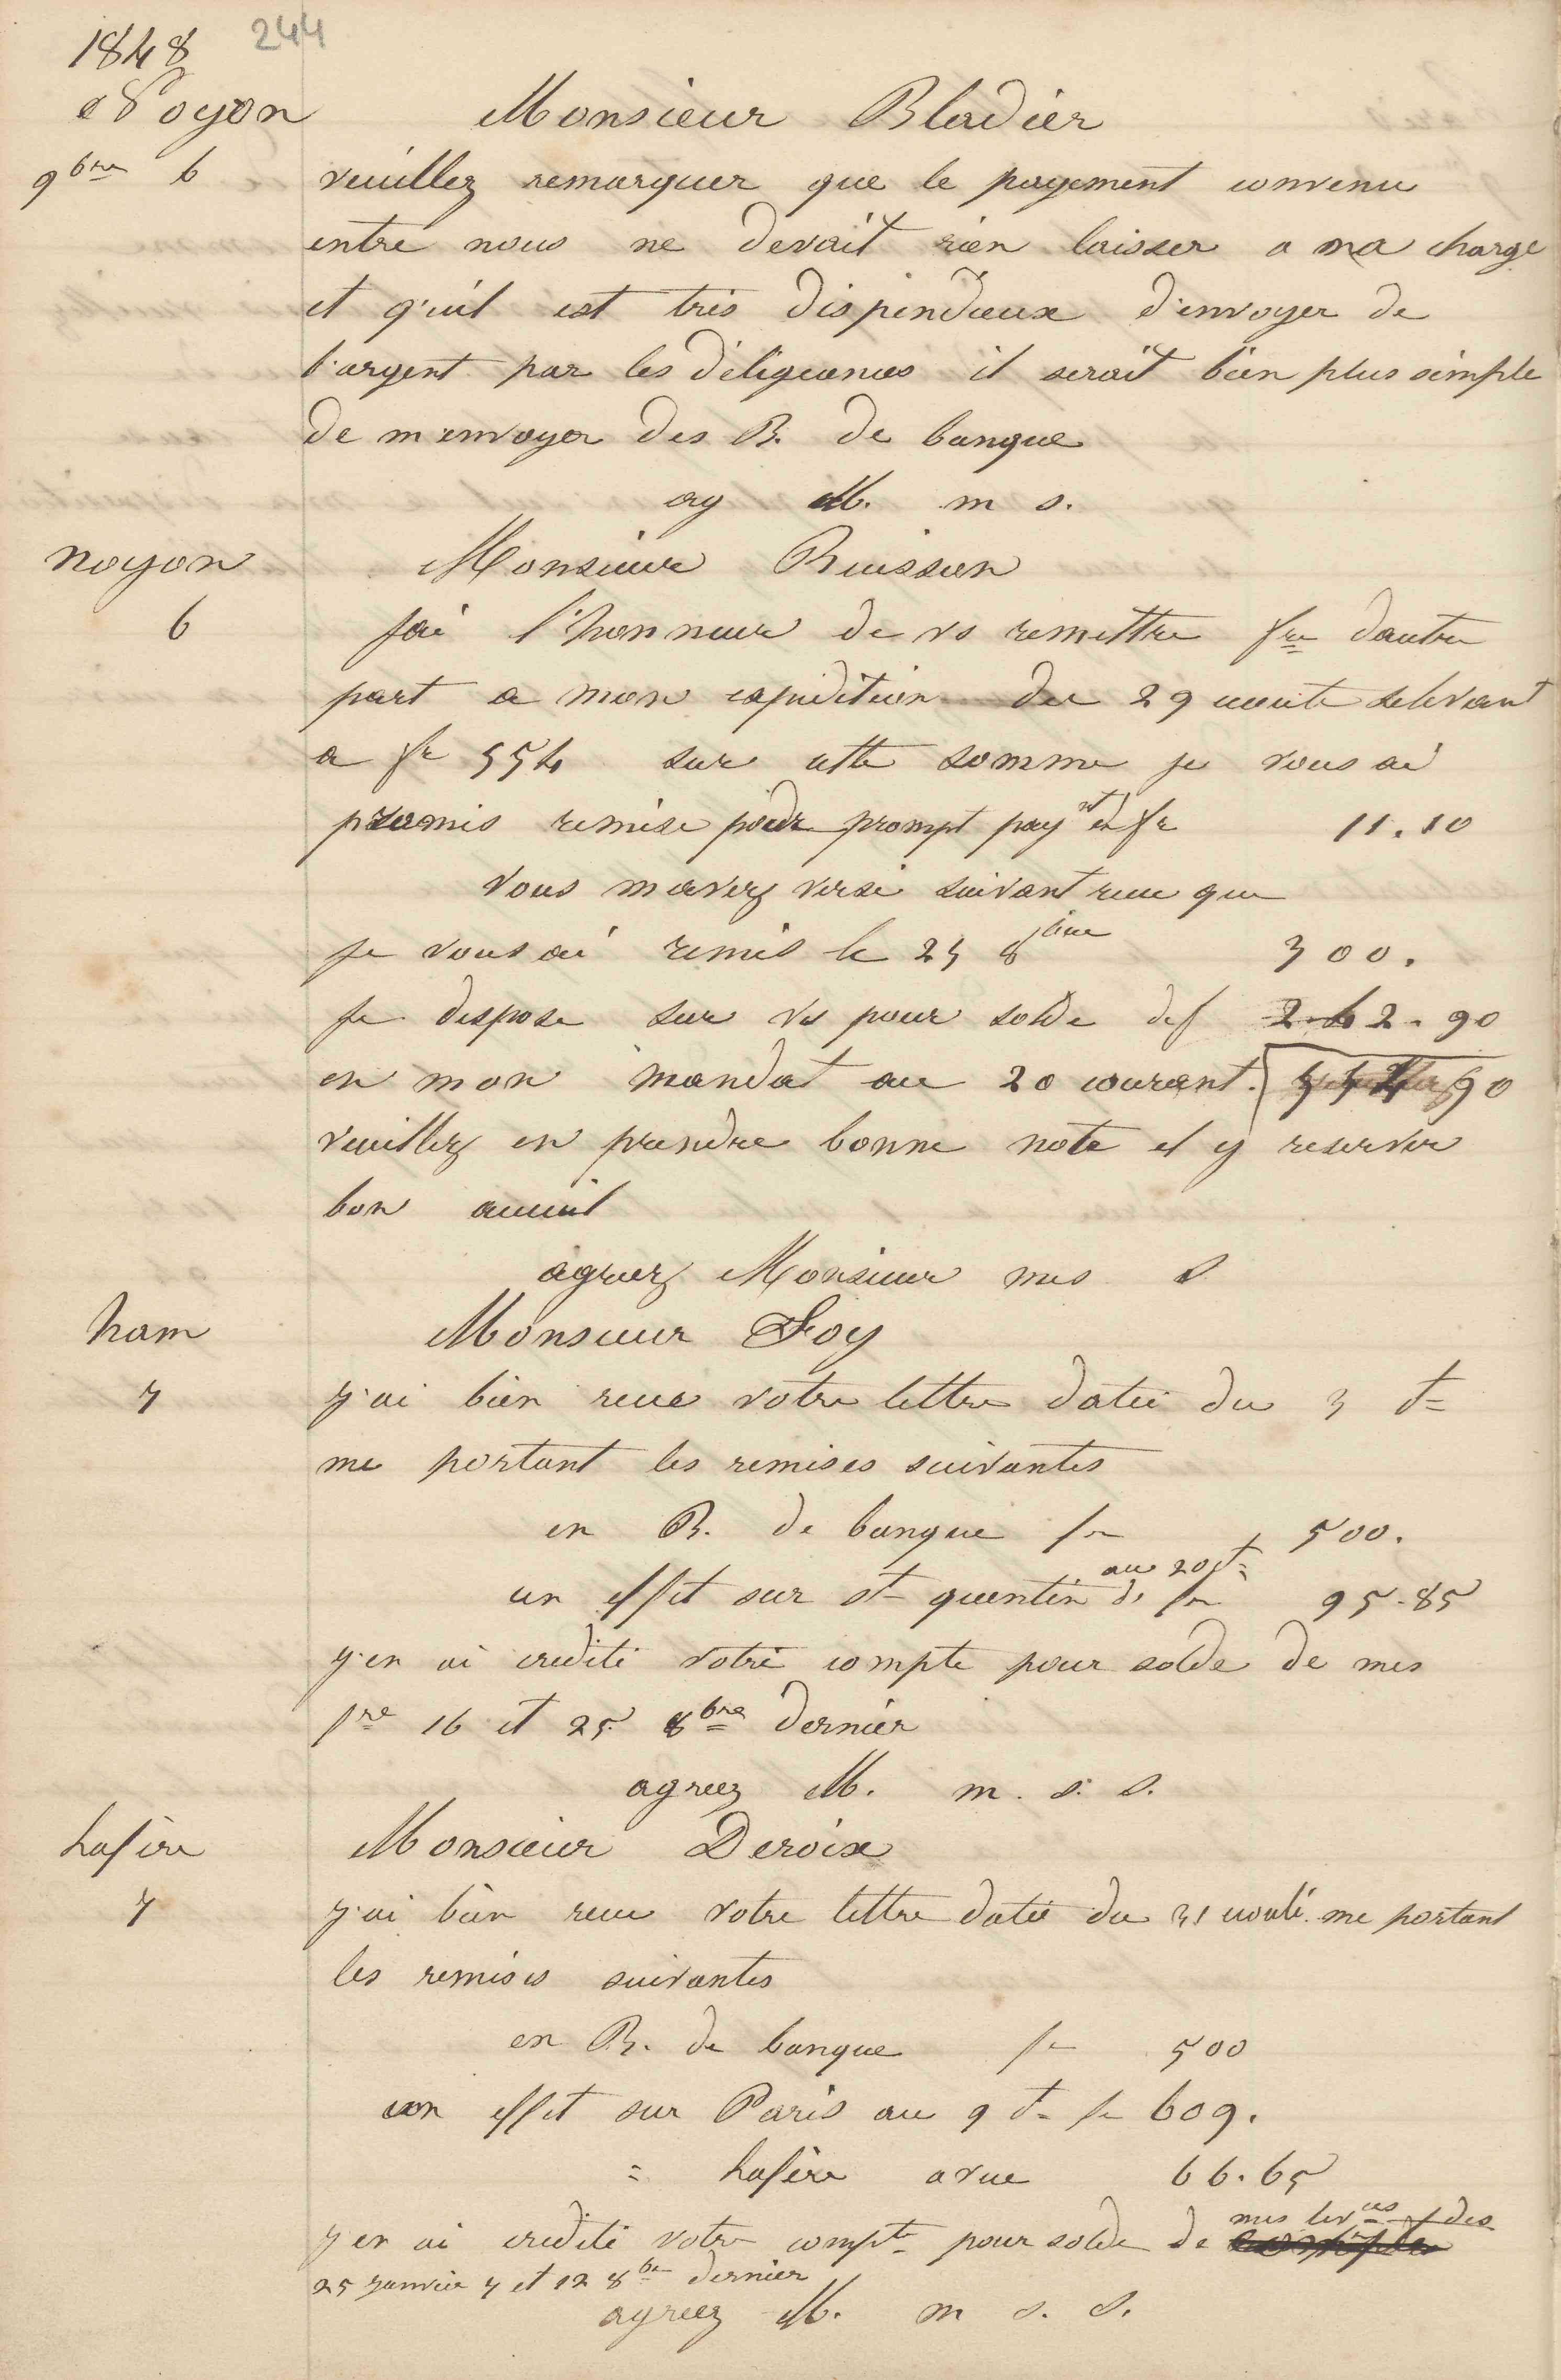 1848 244
Noyon Monsieur Bladier
9bre 6 veuillez remarquer que le payement convenu
entre nous ne devait rien laisser a ma charge
et qu'il est très dispendieux d'envoyer de
l'argent par les déligences il serait bien plus simple
de m'envoyer des B. de banque
ag M. m s.
noyon Monsieur Buisson
6 jai l'honneur de vs remettre fre dautre
part a mon expedition du 29 selevant
a fr 554 sur cette somme je vous ai
promis remise pour prompt payt de fr 11.10
vous mavez versé suivant recu que
je vous ai remis le 23 8bre 300.
je dispose sur vs pour solde def 242.90
en mon mandat au 20 courant. 90
veuillez en prendre bonne note et y reserver
bon accueil
agreez Monsieur mes S
ham Monsieur Foy
7 j'ai bien recu votre lettre datée du 3 ct
me portant les remises suivantes
en B. de banque fr 500.
au 20 ct
un effet sur st quentin de fr 95.85
j'en ai credité votre compte pour solde de mes
fre 16 et 25 8bre dernier
agreez M. m. s. s.
Lafère Monsieur Deroix
7 j'ai bien recu votre lettre datée du 31 me portant
les remises suivantes
en B. de banque fr 500
un effet sur Paris au 9 ct fr 609.
= Lafère a vue 66.65
mes livces des
j'en ai credité votre compte pour solde de compte
25 janvier 7 et 12 8bre dernier
agreez M. m s. s.